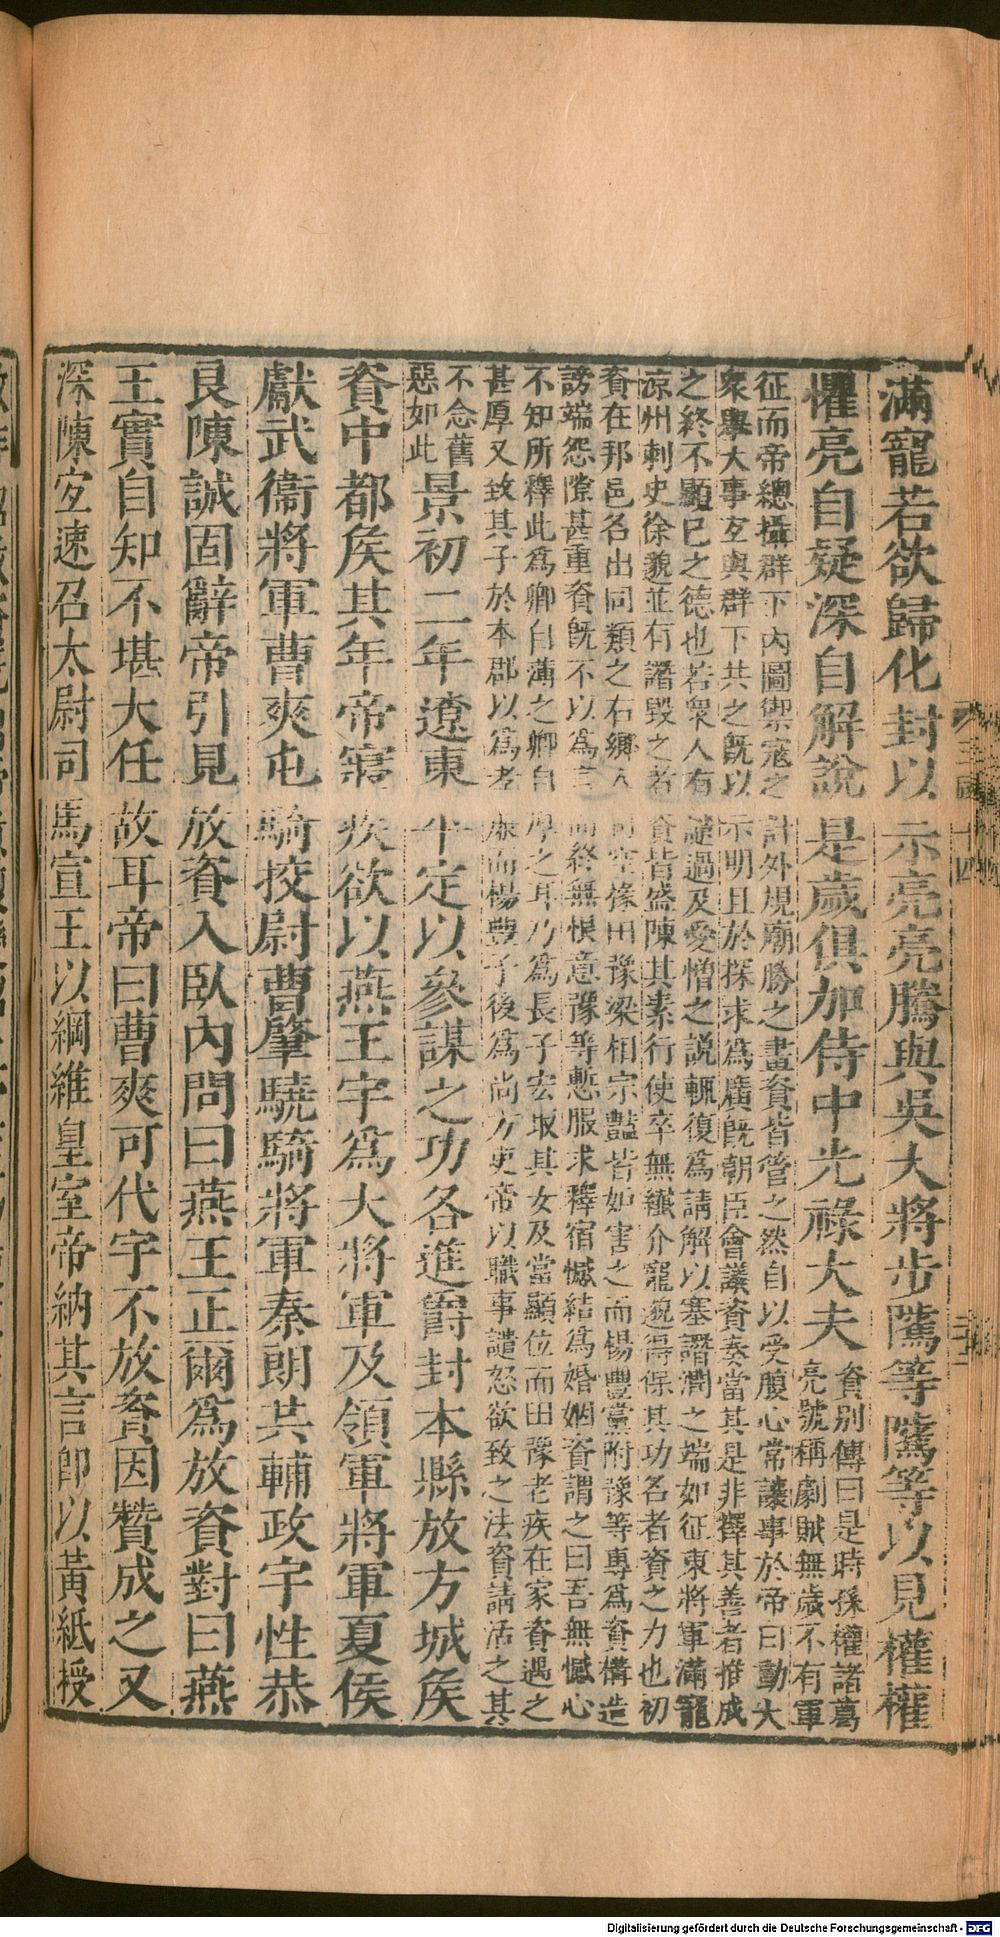 滿寵若欲歸化封以示亮亮騰與吳大將步隲等隲等以見權權
懼亮自疑深自解說是歲俱加侍中光祿大夫
資別傳曰是時孫權諸葛
亮號稱劇賊無歲不有軍
征而帝總攝群下內圖禦寇之計外規廟勝之畫資皆管之然自以受腹心常讓事於帝曰動大
衆舉大事宜與群下共之旣以示明且於探求爲廣旣朝臣會議資奏當其是非擇其善者推成
之終不顯已之德也若衆人有譴過及愛憎之說輒復爲請解以塞譖潤之端如征東將軍滿寵
凉州刺史徐邈並有譖毀之者資皆盛陳其素行使卒無纎介寵邈得保其功名者資之力也初
資在邦邑名出同類之右鄉人司空掾田豫梁相宗豔皆妬害之而楊豐黨附豫等專爲資構造
謗端怨隙甚重資旣不以爲言而終無恨意豫等慙服求釋宿憾結爲婚姻資謂之曰吾無憾心
不知所釋此爲卿自薄之卿自厚之耳乃爲長子宏取其女及當顯位而田豫老疾在家資遇之
甚厚又致其子於本郡以爲孝廉而楊豐子後爲尚方吏帝以職事譴怒欲致之法資請活之其
不念舊
惡如此
景初二年遼東平定以參謀之功各進爵封本縣放方城侯
資中都侯其年帝寢疾欲以燕王宇爲大將軍及領軍將軍夏侯
獻武衞將軍曹爽屯騎挍尉曹肇驍騎將軍秦朗共輔政宇性恭
良陳誠固辭帝引見放資入臥內問曰燕王正爾爲放資對曰燕
王實自知不堪大任故耳帝曰曹爽可代宇不放資因贊成之又
深陳宜速召太尉司馬宣王以綱維皇室帝納其言卽以黃紙授
Digitalisierung gefördert durch die Deutsche Forschungsgemeinschaft - DFG